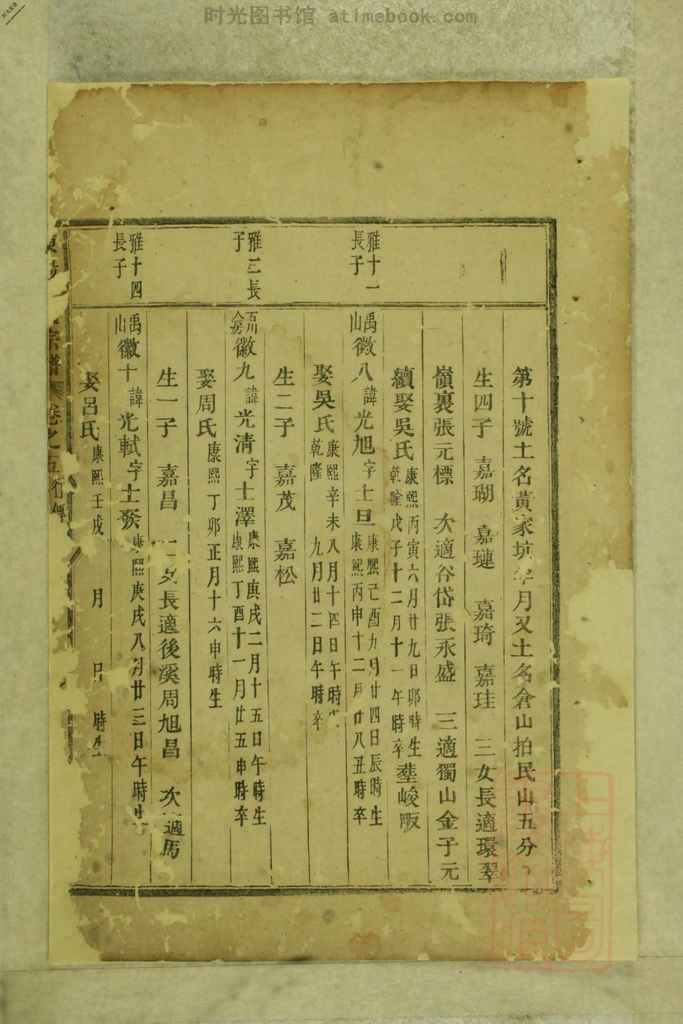 时光图书馆 atimebook.com
第十號土名黃家坑 月又土名倉山拍民山五分
生四子 嘉瑚 嘉璉 嘉琦 嘉珪 三女長適環翠
嶺裏張元標 次適谷岱張永盛 三適獨山金子元
續娶吳氏 康熙丙寅六月廿九日卯時生 乾隆戊子十二月十一午時卒 塟峻畈
雅十一長子
禹山 徽八 諱光旭字士旦 康熙己酉九月廿四日辰時生 康熙丙申十二月廿八丑時卒
娶吳氏 康熙辛未八月十四日午時 乾隆 九月廿二日午時卒
生二子 嘉茂 嘉松
雅三長子
徽九 諱光清字士澤 康熙庚戌二月十五日午時生 康熙丁酉十一月廿五申時卒
娶周氏 康熙丁卯正月十六申時生
生一子 嘉昌 二女長適後溪周旭昌 次適馬
雅十四長子
禹山 徽十 諱光軾字士發 康熙庚戌八月廿三日午時生
娶呂氏 康熙壬戌 月 日 時生
宗譜 卷之五